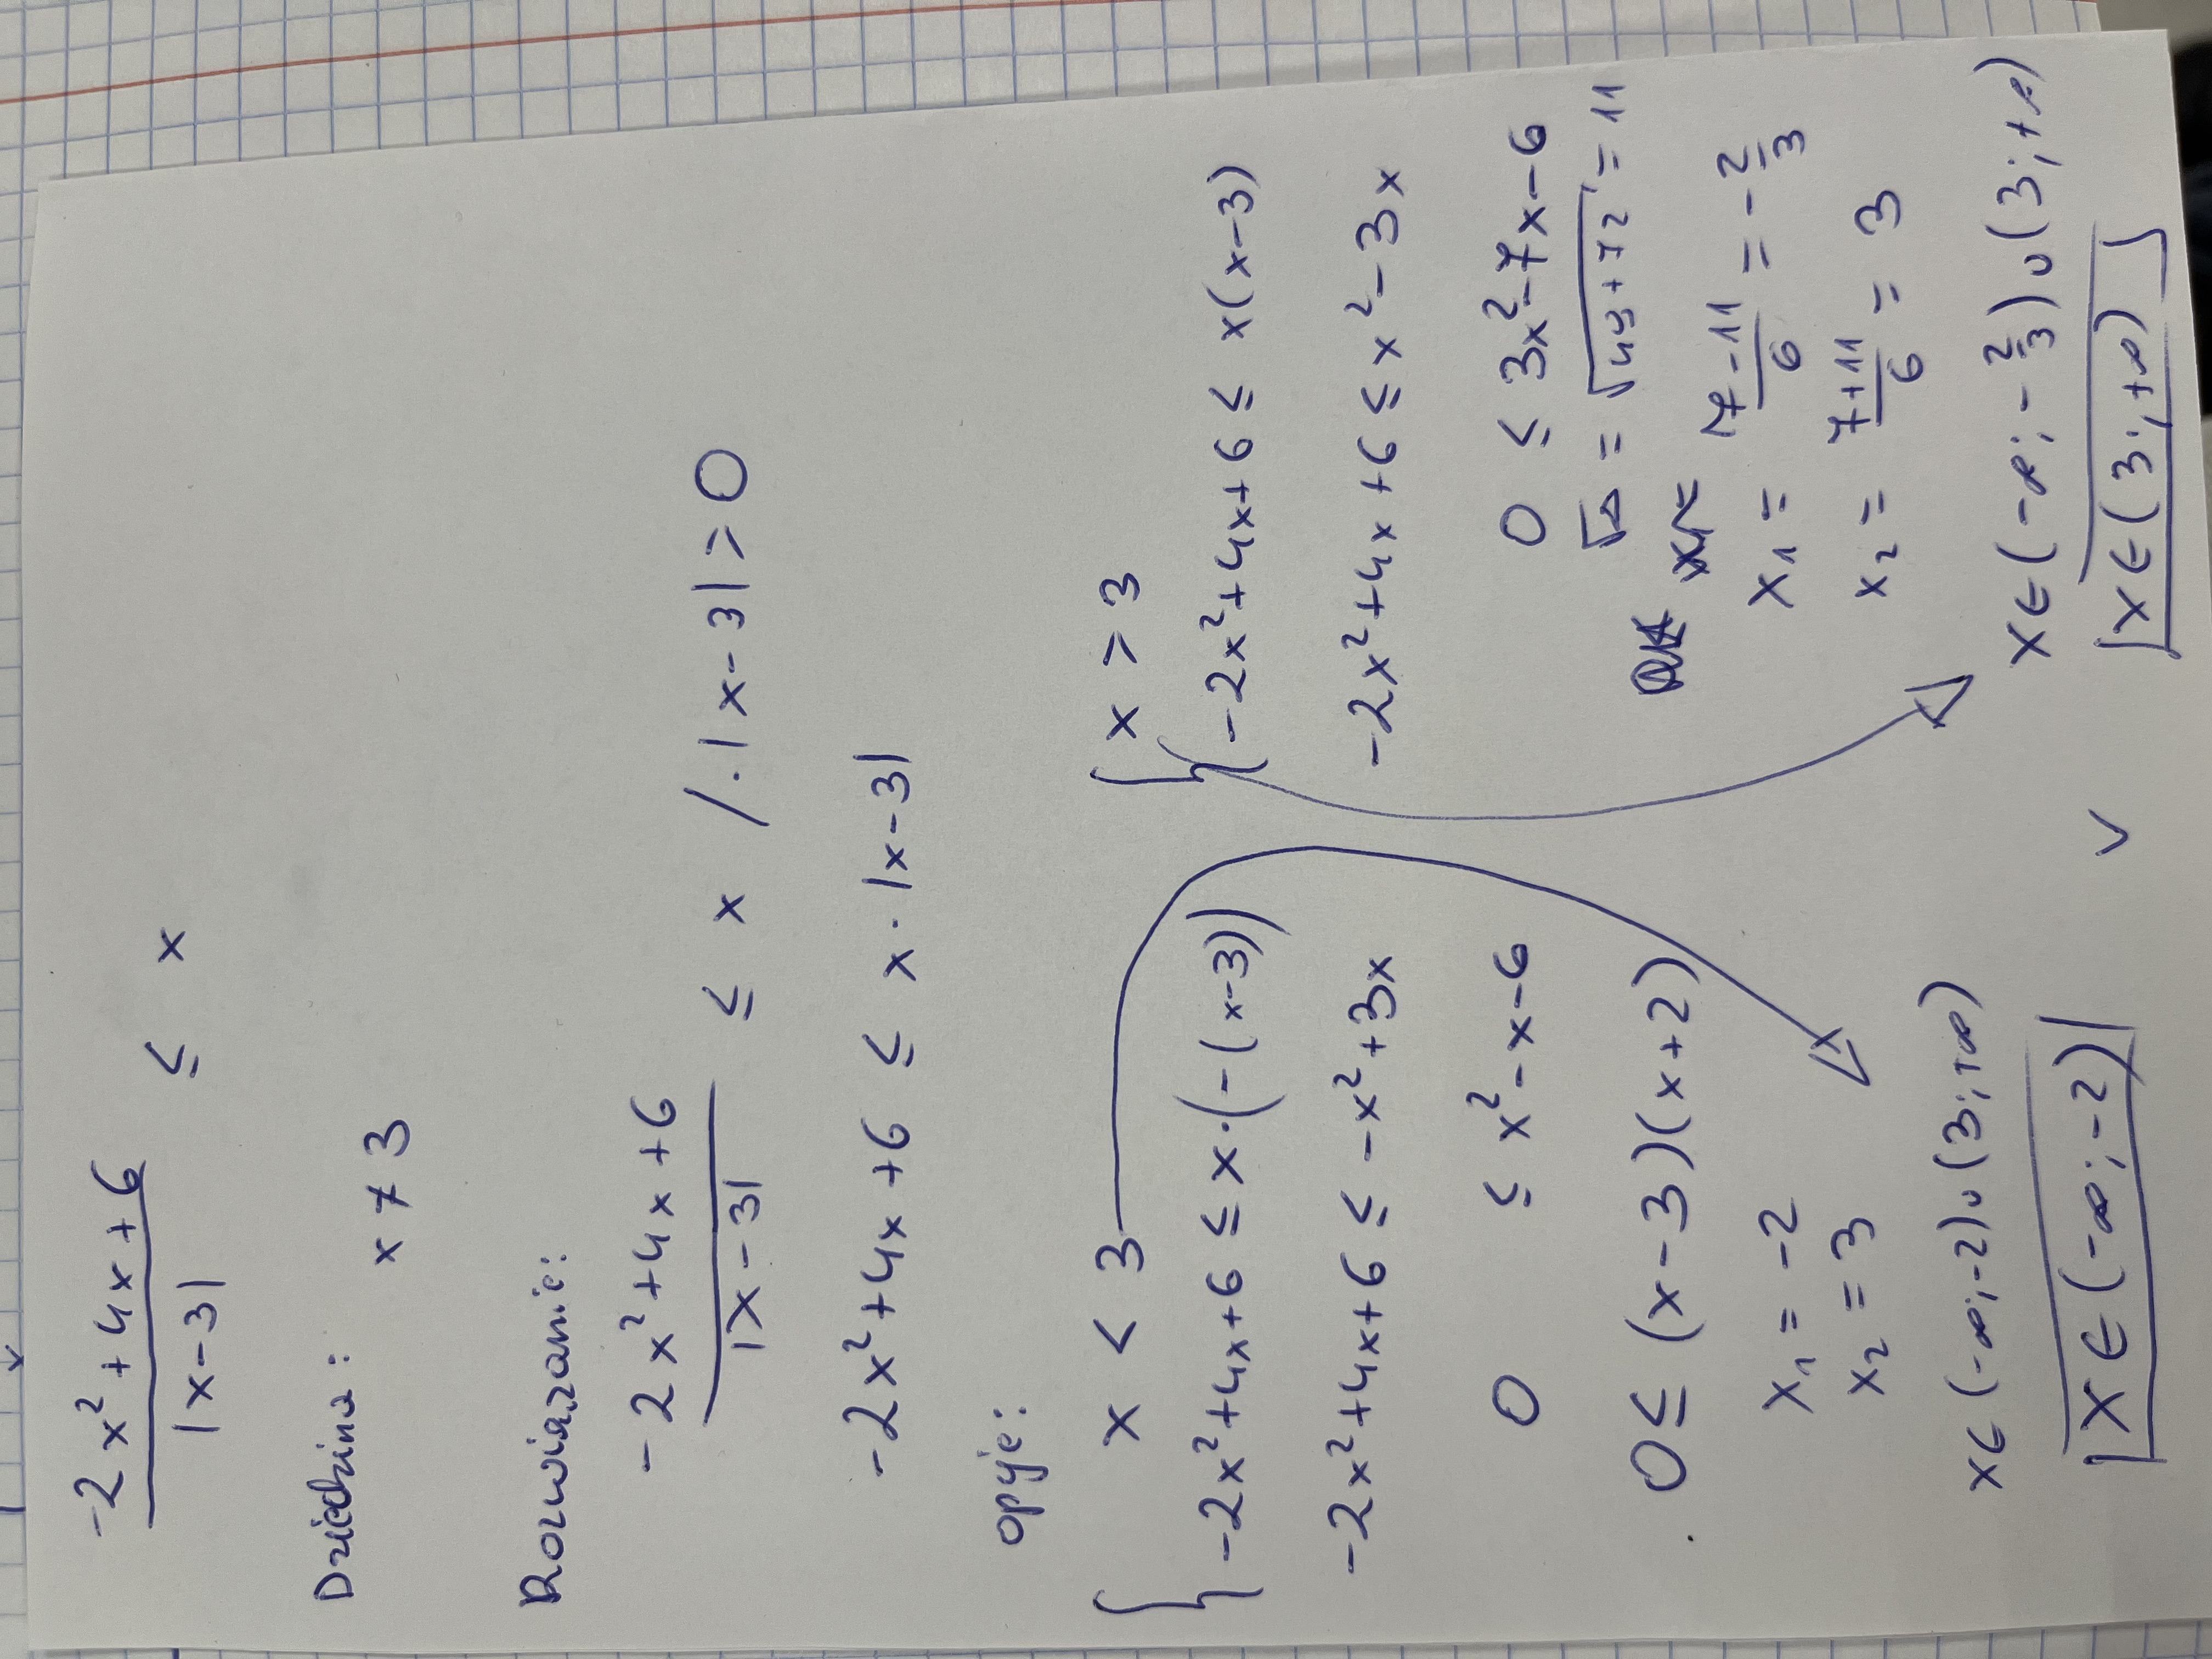 -2x²+4x+6 / |x-3| ≤ x
Dziedzina:
x ≠ 3
Rozwiązanie:
-2x²+4x+6 / |x-3| ≤ x /·|x-3|>0
-2x²+4x+6 ≤ x·|x-3|
opcje:
{ x < 3
-2x²+4x+6 ≤ x·(-(x-3))
-2x²+4x+6 ≤ -x²+3x
0 ≤ x²-x-6
0 ≤ (x-3)(x+2)
x₁ = -2
x₂ = 3
x∈(-∞;-2)∪(3;+∞)
x∈(-∞;-2)
∨
{ x > 3
-2x²+4x+6 ≤ x(x-3)
-2x²+4x+6 ≤ x²-3x
0 ≤ 3x²-7x-6
√Δ = √49+72 = 11
x₁ = 7-11 / 6 = -2/3
x₂ = 7+11 / 6 = 3
x∈(-∞;-2/3)∪(3;+∞)
x∈(3;+∞)